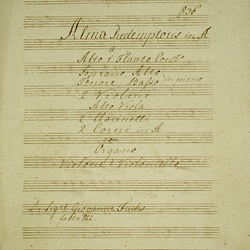 836
Alma Redemptoris in A
a
Alto e Flauto Conc.
Soprano Alto
Tenore Basso in pieno
2 Violini
Alto Viola
2 Clarinetti
2 Corni in A
con
Organo
Violone e Violoncello
Di Sigre Giovanni Fuchs